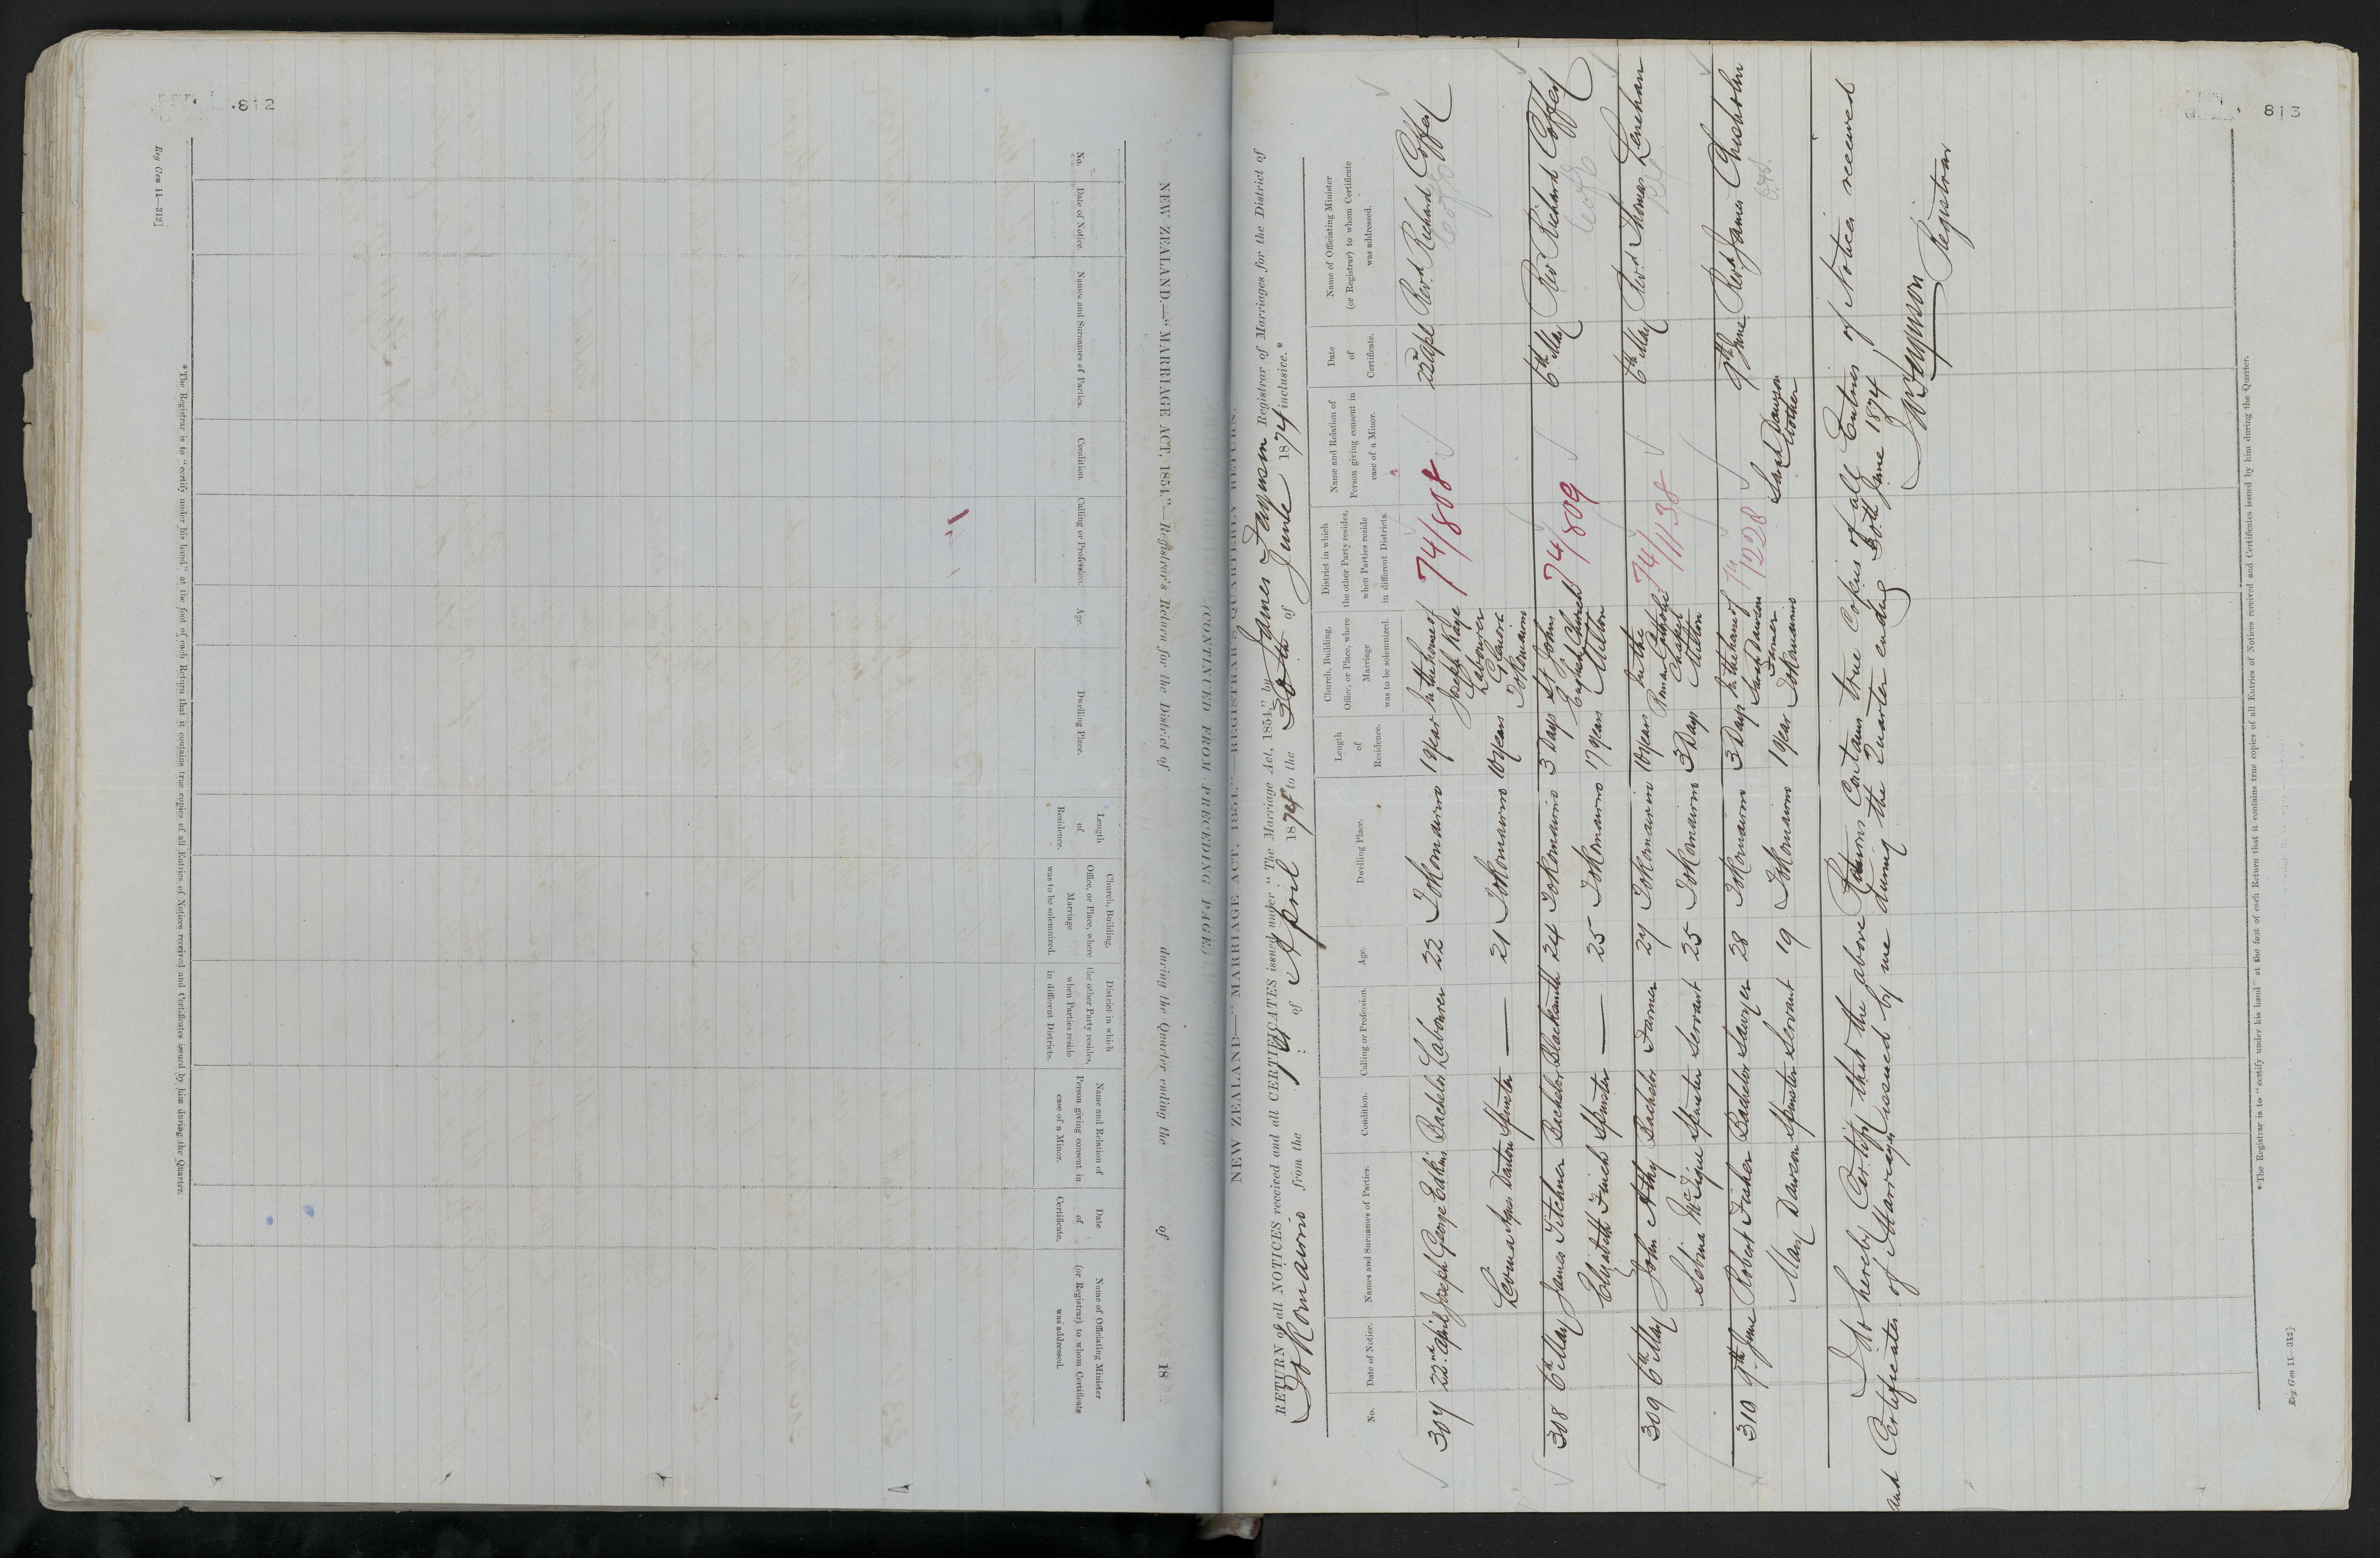 812
Reg Gen 11—312]
NEW ZEALAND.—"MARRIAGE ACT, 1854."—Registrar's Return for the District of during the Quarter ending the of 18
No.
Date of Notice.
Names and Surnames of Parties.
Condition.
Calling or Profession.
Age.
Dwelling Place.
Length
of
Residence.
Church, Building,
Office, or Place, where
Marriage
was to be solemnized.
District in which
the other Party resides,
when Parties reside
in different Districts.
Name and Relation of
Person giving consent in
case of a Minor.
Date
of
Certificate.
Name of Officiating Minister
(or Registrar) to whom Certificate
was addressed.
*The Registrar is to "certify under his hand" at the foot of each Return that it contains true copies of all Entries of Notices received and Certificates issued by him during the Quarter.
813
NEW ZEALAND—"MARRIAGE ACT, 1854."—REGISTRAR'S QUARTERLY RETURN.
(CONTINUED FROM PRECEDING PAGE)
RETURN of all NOTICES received and all CERTIFICATES issued under "The Marriage Act, 1854," by James Fayerson Registrar of Marriages for the District of
Tokomairiro from the 1st of April 1874 to the 30th of June 1874 inclusive.*
No.
Date of Notice.
Names and Surnames of Parties.
Condition.
Calling or Profession.
Age.
Dwelling Place.
Length
of
Residence.
Church, Building,
Office, or Place, where
Marriage
was to be solemnized.
District in which
the other Party resides,
when Parties reside
in different Districts.
Name and Relation of
Person giving consent in
case of a Minor.
Date
of
Certificate.
Name of Officiating Minister
(or Registrar) to whom Certificate
was addressed.
307 22nd April Joseph George Edkins Bachelor Labourer 22 Tokomairiro 1 year In the house of Joseph Kaye Labourer Glenore Tokomairiro 74/808 22nd Apl Revd Richard Coffey
Agnes Spinster — 21 Tokomairiro 10 years
308 6th May James Titchner Bachelor Blacksmith 24 Tokomairiro 3 Days St Johns English Church Milton 74/809 6th May Rev Richard Coffey
Elizabeth Finch Spinster — 25 Tokomairiro 17 years
309 6th May John Athy Bachelor Farmer 27 Tokomairiro 10 years In the Roman Catholic Chapel Milton 74/1138 6th May Revd Thomas Lenehan
Sebina McTigue Spinster Servant 25 Tokomairiro 3 Days
310 9th June Robert Fraher Bachelor Sawyer 28 Tokomairiro 3 Days In the house of Sarah Dawson Farmer Tokomairiro 74/1228 Sarah Dawson Mother 9th June Revd James Chisholm
Mary Dawson Spinster Servant 19 Tokomairiro 1 year
I do hereby Certify that the above Returns Contain true Copies of all Entries of Notices received
and Certificates of Marriages issued by me during the Quarter ending 30th June 1874
Registrar
*The Registrar is to "certify under his hand" at the foot of each Return that it contains true copies of all Entries of Notices received and Certificates issued by him during the Quarter.
Reg Gen 11—312]